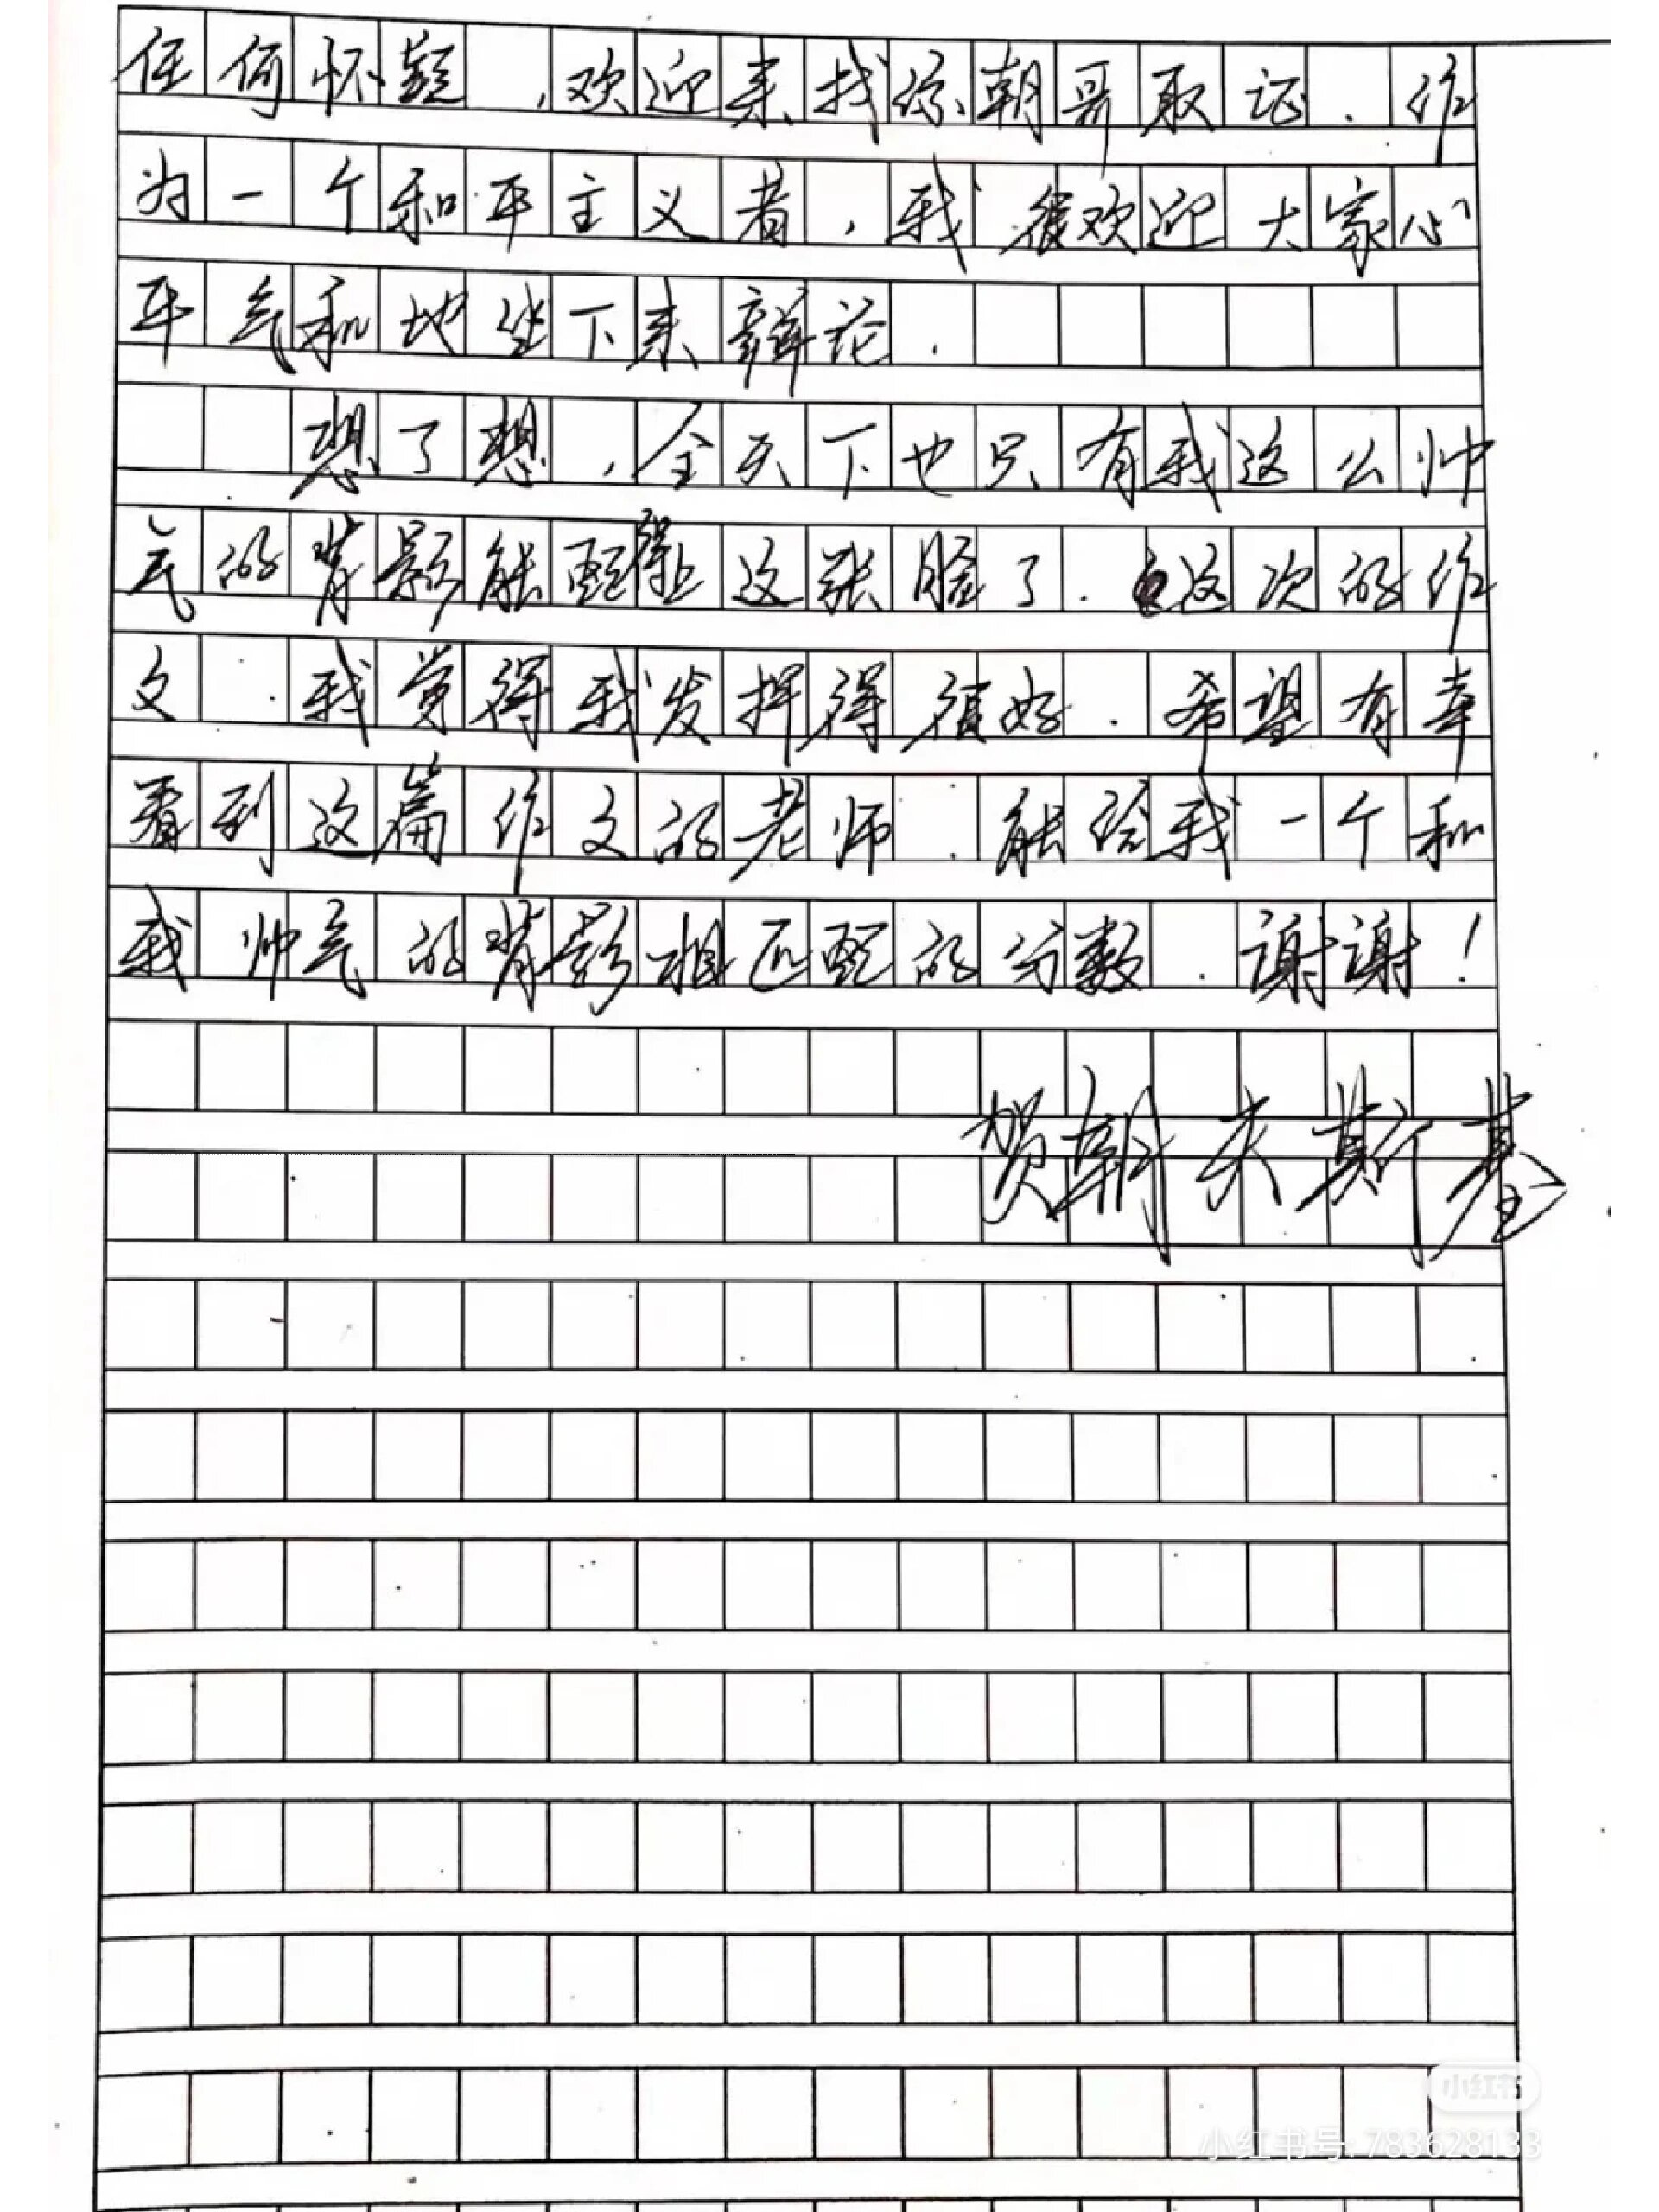 任何怀疑，欢迎来找你朝哥取证.作
为一个和平主义者，我很欢迎大家心
平气和地坐下来辩论.
想了想，全天下也只有我这么帅
气的背影能配得上这张脸了.这次的作
文.我觉得我发挥得很好.希望有幸
看到这篇作文的老师.能给我一个和
我帅气的背影相匹配的分数.谢谢！
贺朝夫斯基
小红书
小红书号:783628133